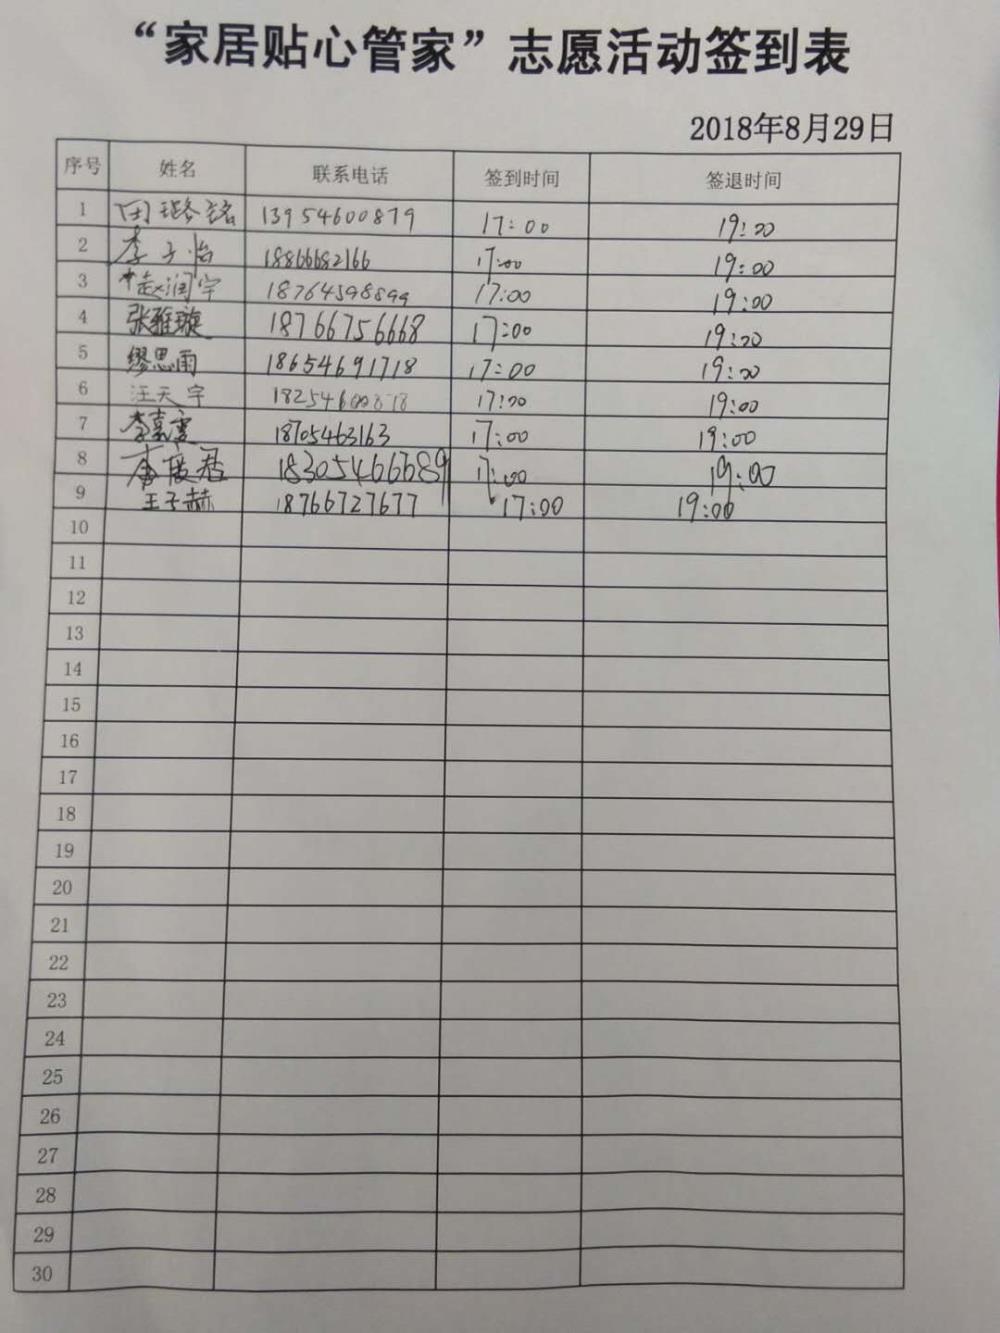 “家居贴心管家”志愿活动签到表
2018年8月29日
序号 姓名 联系电话 签到时间 签退时间
1 田璐铭 13954600879 17:00 19:00
2 李子怡 18866682166 17:00 19:00
3 赵润宇 18764598899 17:00 19:00
4 张雅璇 18766756668 17:00 19:00
5 缪思雨 18654691718 17:00 19:00
6 汪天宇 18254600878 17:00 19:00
7 李嘉雯 18705463163 17:00 19:00
8 18305466689 17:00 19:00
9 王子赫 18766727677 17:00 19:00
10
11
12
13
14
15
16
17
18
19
20
21
22
23
24
25
26
27
28
29
30